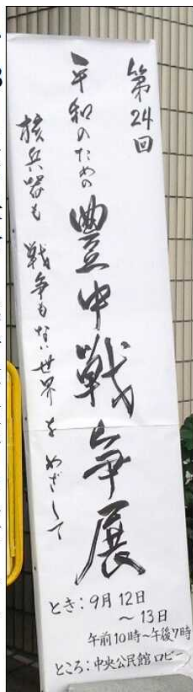 第24回
平和のための
豊中戦争展
核兵器も 戦争もない世界をめざして
とき：9月12日
～13日
午前10時～午後7時
ところ：中央公民館ロビー